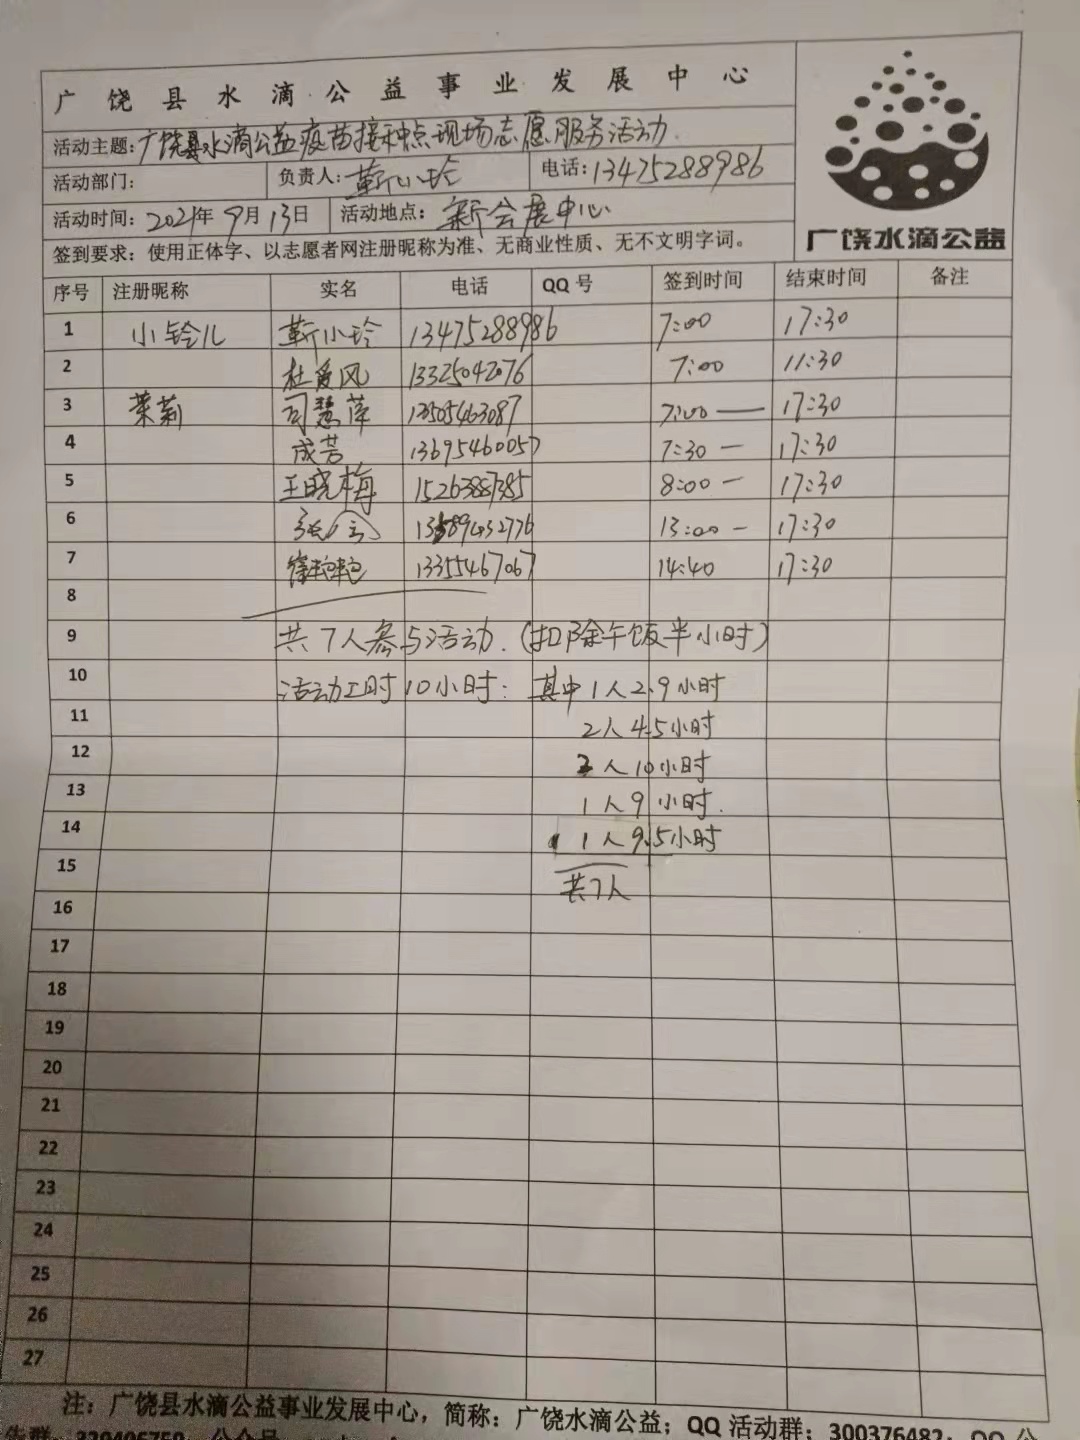 广饶县水滴公益事业发展中心
活动主题:广饶县水滴公益疫苗接种点现场志愿服务活动.
活动部门: 负责人:靳小玲 电话:13475288986
活动时间:2021年9月13日 活动地点:新会展中心
签到要求:使用正体字、以志愿者网注册昵称为准、无商业性质、无不文明字词。
广饶水滴公益
序号 注册昵称 实名 电话 QQ号 签到时间 结束时间 备注
1 小铃儿 靳小玲 13475288986 7:00 17:30
2 杜爱风 13325042076 7:00 11:30
3 茉莉 司慧萍 13505463087 7:00 — 17:30
4 成芳 13695460057 7:30 — 17:30
5 王晓梅 15263887385 8:00 — 17:30
6 张会 13589432776 13:00 — 17:30
7 崔艳艳 13355467067 14:40 17:30
8
9 共7人参与活动.(扣除午饭半小时)
10 活动工时10小时: 其中1人2.9小时
11 2人4.5小时
12 2人10小时
13 1人9小时.
14 1人9.5小时
15 共7人
16
17
18
19
20
21
22
23
24
25
26
27
注:广饶县水滴公益事业发展中心,简称:广饶水滴公益;QQ活动群:300376482;QQ公